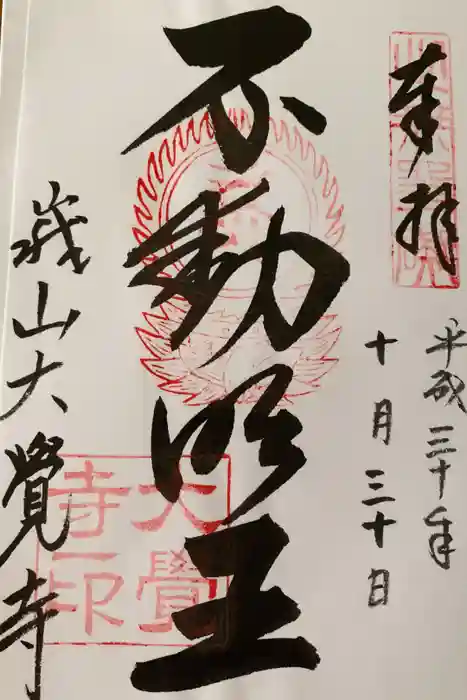 奉拝
平成三十年
十月三十日
不動明王
嵯峨山大覺寺
大覺寺印